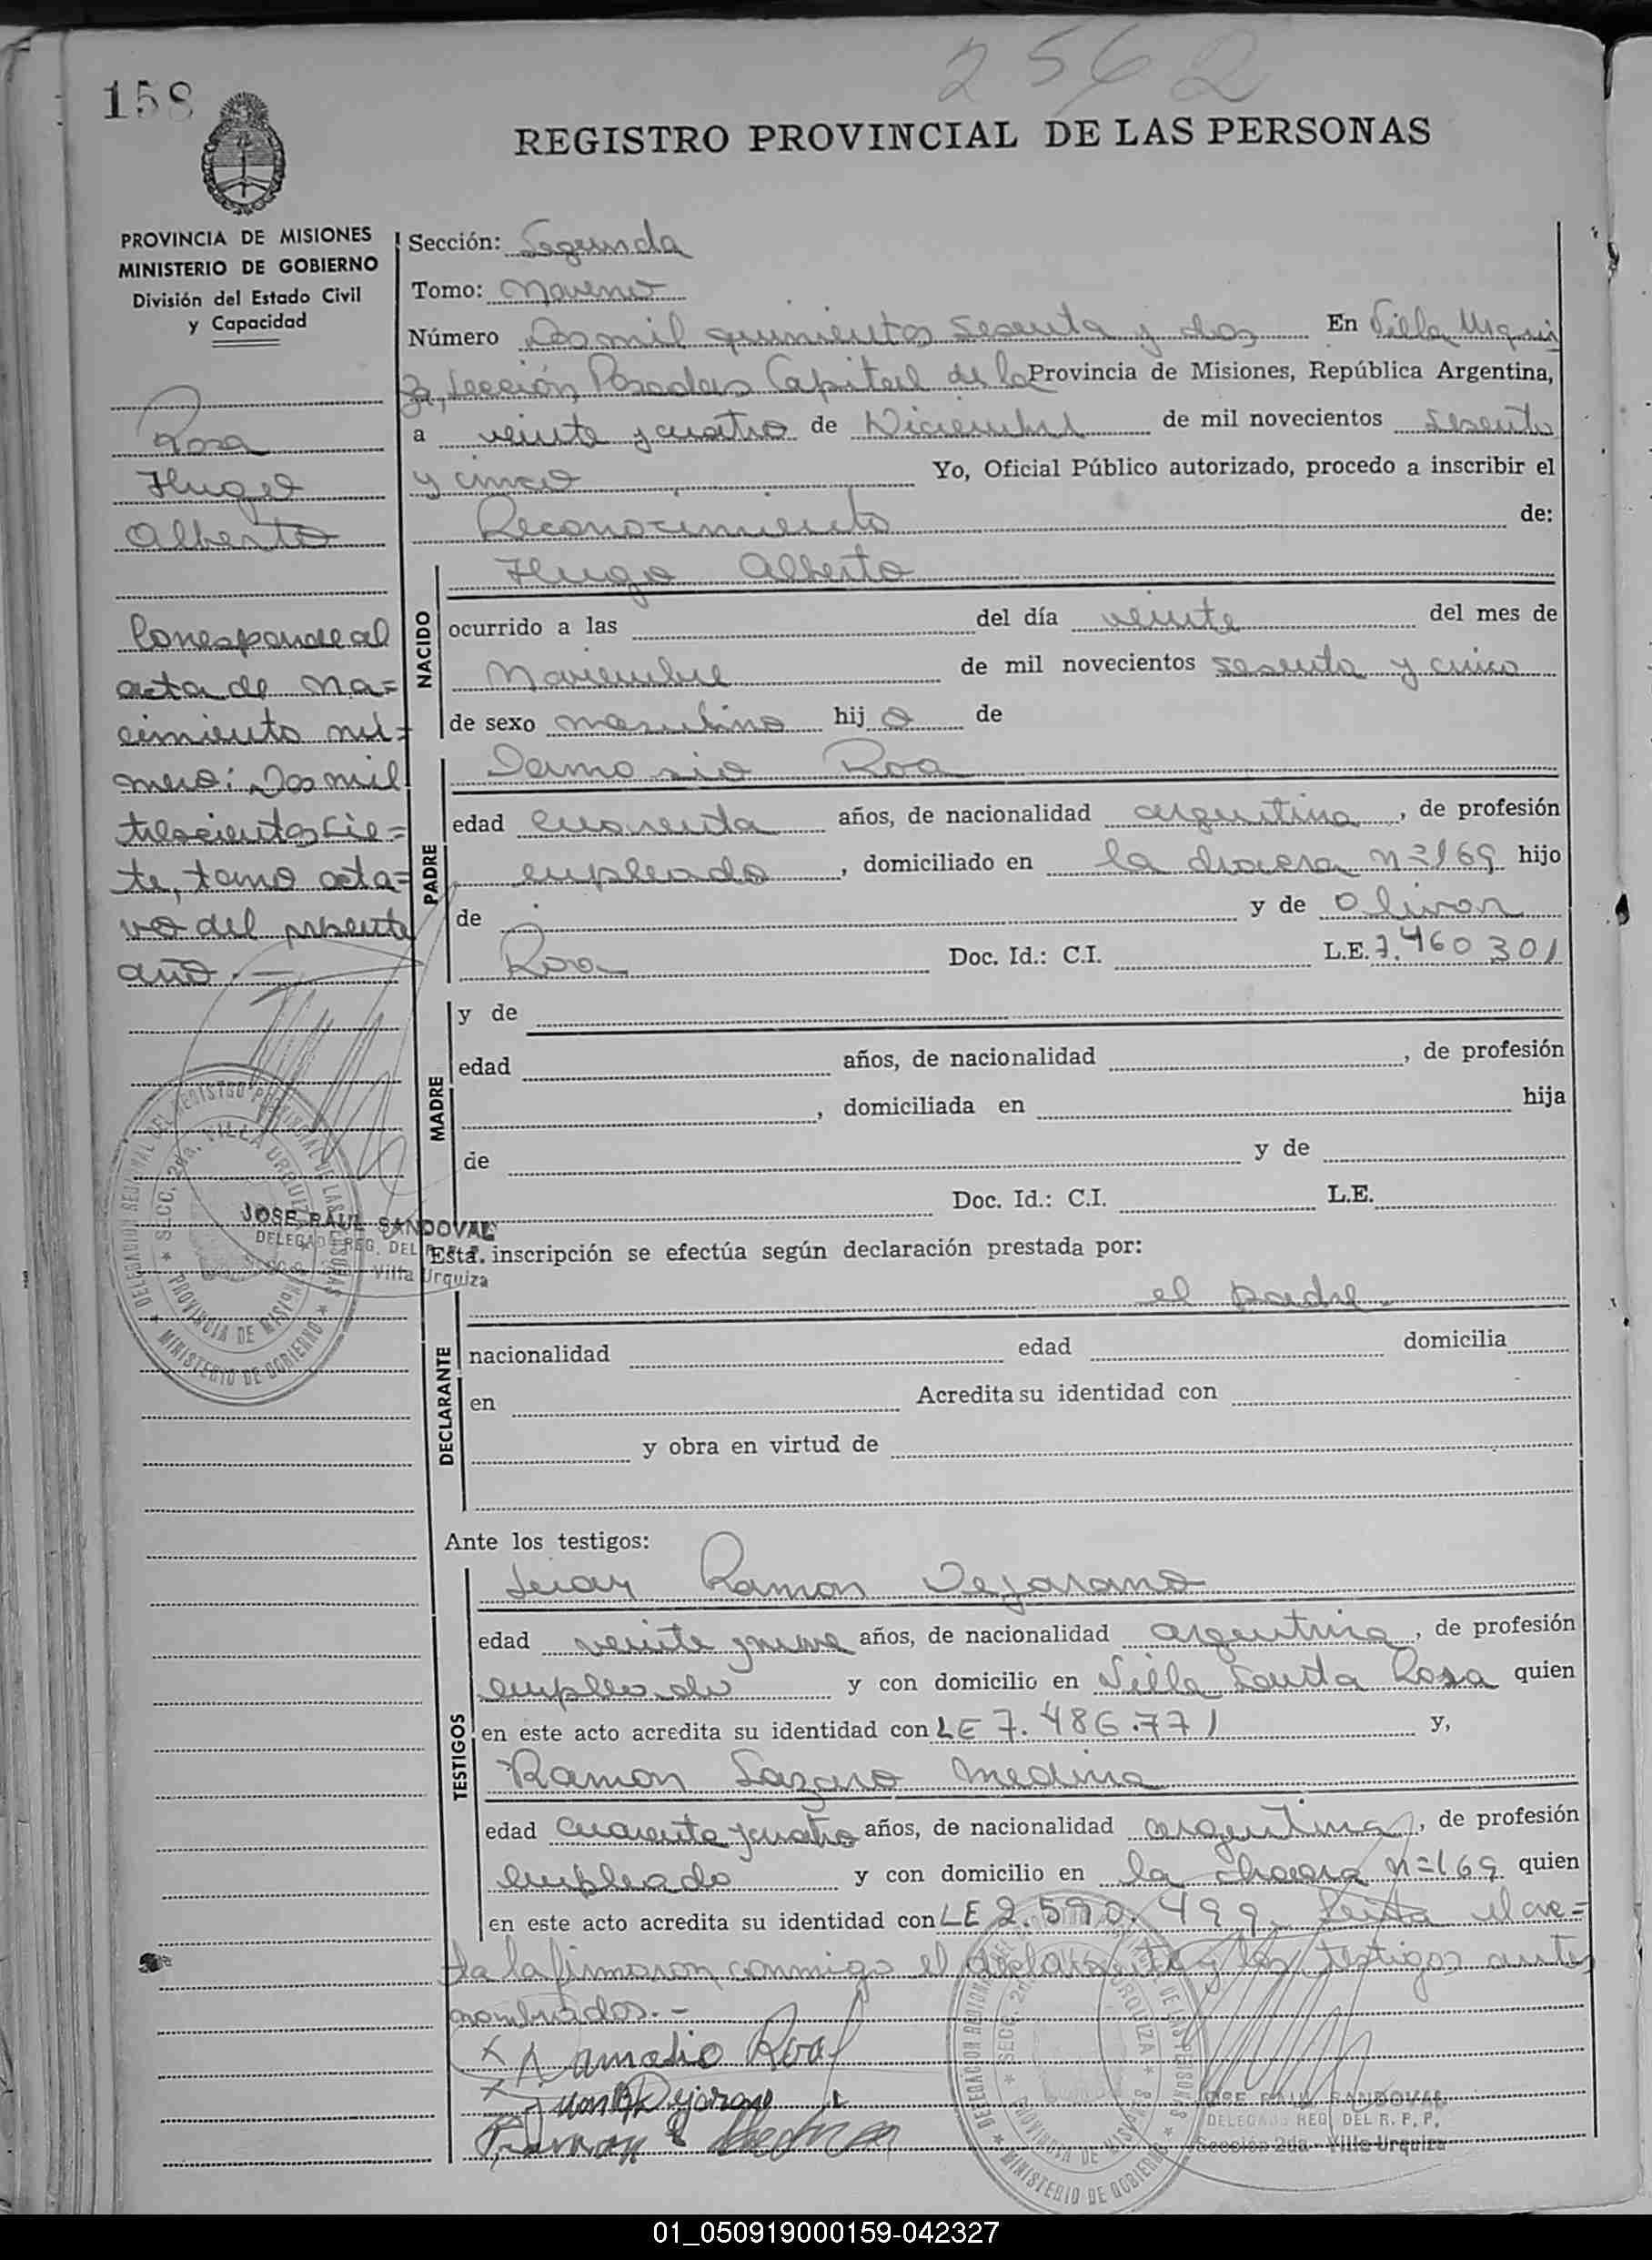 2562
158
REGISTRO PROVINCIAL DE LAS PERSONAS
PROVINCIA DE MISIONES
MINISTERIO DE GOBIERNO
División del Estado Civil
y Capacidad
Rosa
Hugo
Alberto
Corresponde al
acta de na=
cimiento nú=
mero: Dos mil
trescientos sie=
te, tomo octa=
vo del presente
año.—
JOSE RAUL SANDOVAL
DELEGADO REG. DEL
Villa Urquiza
DELEGACION REGIONAL DEL REGISTRO PROVINCIAL DE LAS PERSONAS
SECC. 2da. VILLA URQUIZA
PROVINCIA DE MISIONES
MINISTERIO DE GOBIERNO
Sección: Segunda
Tomo: Noveno
Número Dos mil quinientos sesenta y dos En Villa Urqui
za, Sección Posadas Capital de la Provincia de Misiones, República Argentina,
a veinte y cuatro de Diciembre de mil novecientos sesenta
y cinco Yo, Oficial Público autorizado, procedo a inscribir el
Reconocimiento de:
NACIDO
Hugo Alberto
ocurrido a las del día veinte del mes de
Noviembre de mil novecientos sesenta y cinco
de sexo masculino hijo de
PADRE
Damasio Roa
edad cuarenta años, de nacionalidad argentina, de profesión
empleado, domiciliado en la chacra n=169 hijo
de y de Olivon
Roa Doc. Id.: C.I. L.E. 7.460301
MADRE
y de
edad años, de nacionalidad , de profesión
, domiciliada en hija
de y de
Doc. Id.: C.I. L.E.
Esta inscripción se efectúa según declaración prestada por:
DECLARANTE
el padre.
nacionalidad edad domicilia
en Acredita su identidad con
y obra en virtud de
Ante los testigos:
TESTIGOS
Juan Ramon Dejarano
edad veinte y nueve años, de nacionalidad argentina, de profesión
empleado y con domicilio en Villa Santa Rosa quien
en este acto acredita su identidad con LE 7.486.771 y,
Ramon Lazaro Medina
edad cuarenta y cuatro años, de nacionalidad argentina, de profesión
empleado y con domicilio en la chacra n=169 quien
en este acto acredita su identidad con LE 2.590.499. Leída el ac=
ta la firmaron conmigo el declarante y los testigos antes
nombrados.—
x Damasio Roa
x Juan R Dejarano
Ramon L Medina
DELEGACION REGIONAL DE LAS PERSONAS
SECC. 2da. URQUIZA
PROVINCIA DE MISIONES
MINISTERIO DE GOBIERNO
JOSE RAUL SANDOVAL
DELEGADO REG. DEL R. P. P.
Sección 2da - Villa Urquiza
01_050919000159-042327